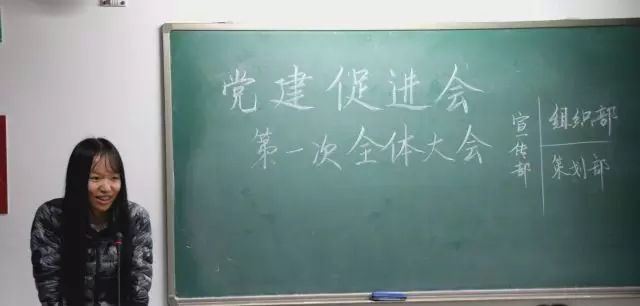 党建促进会
第一次全体大会
宣传部
组织部
策划部